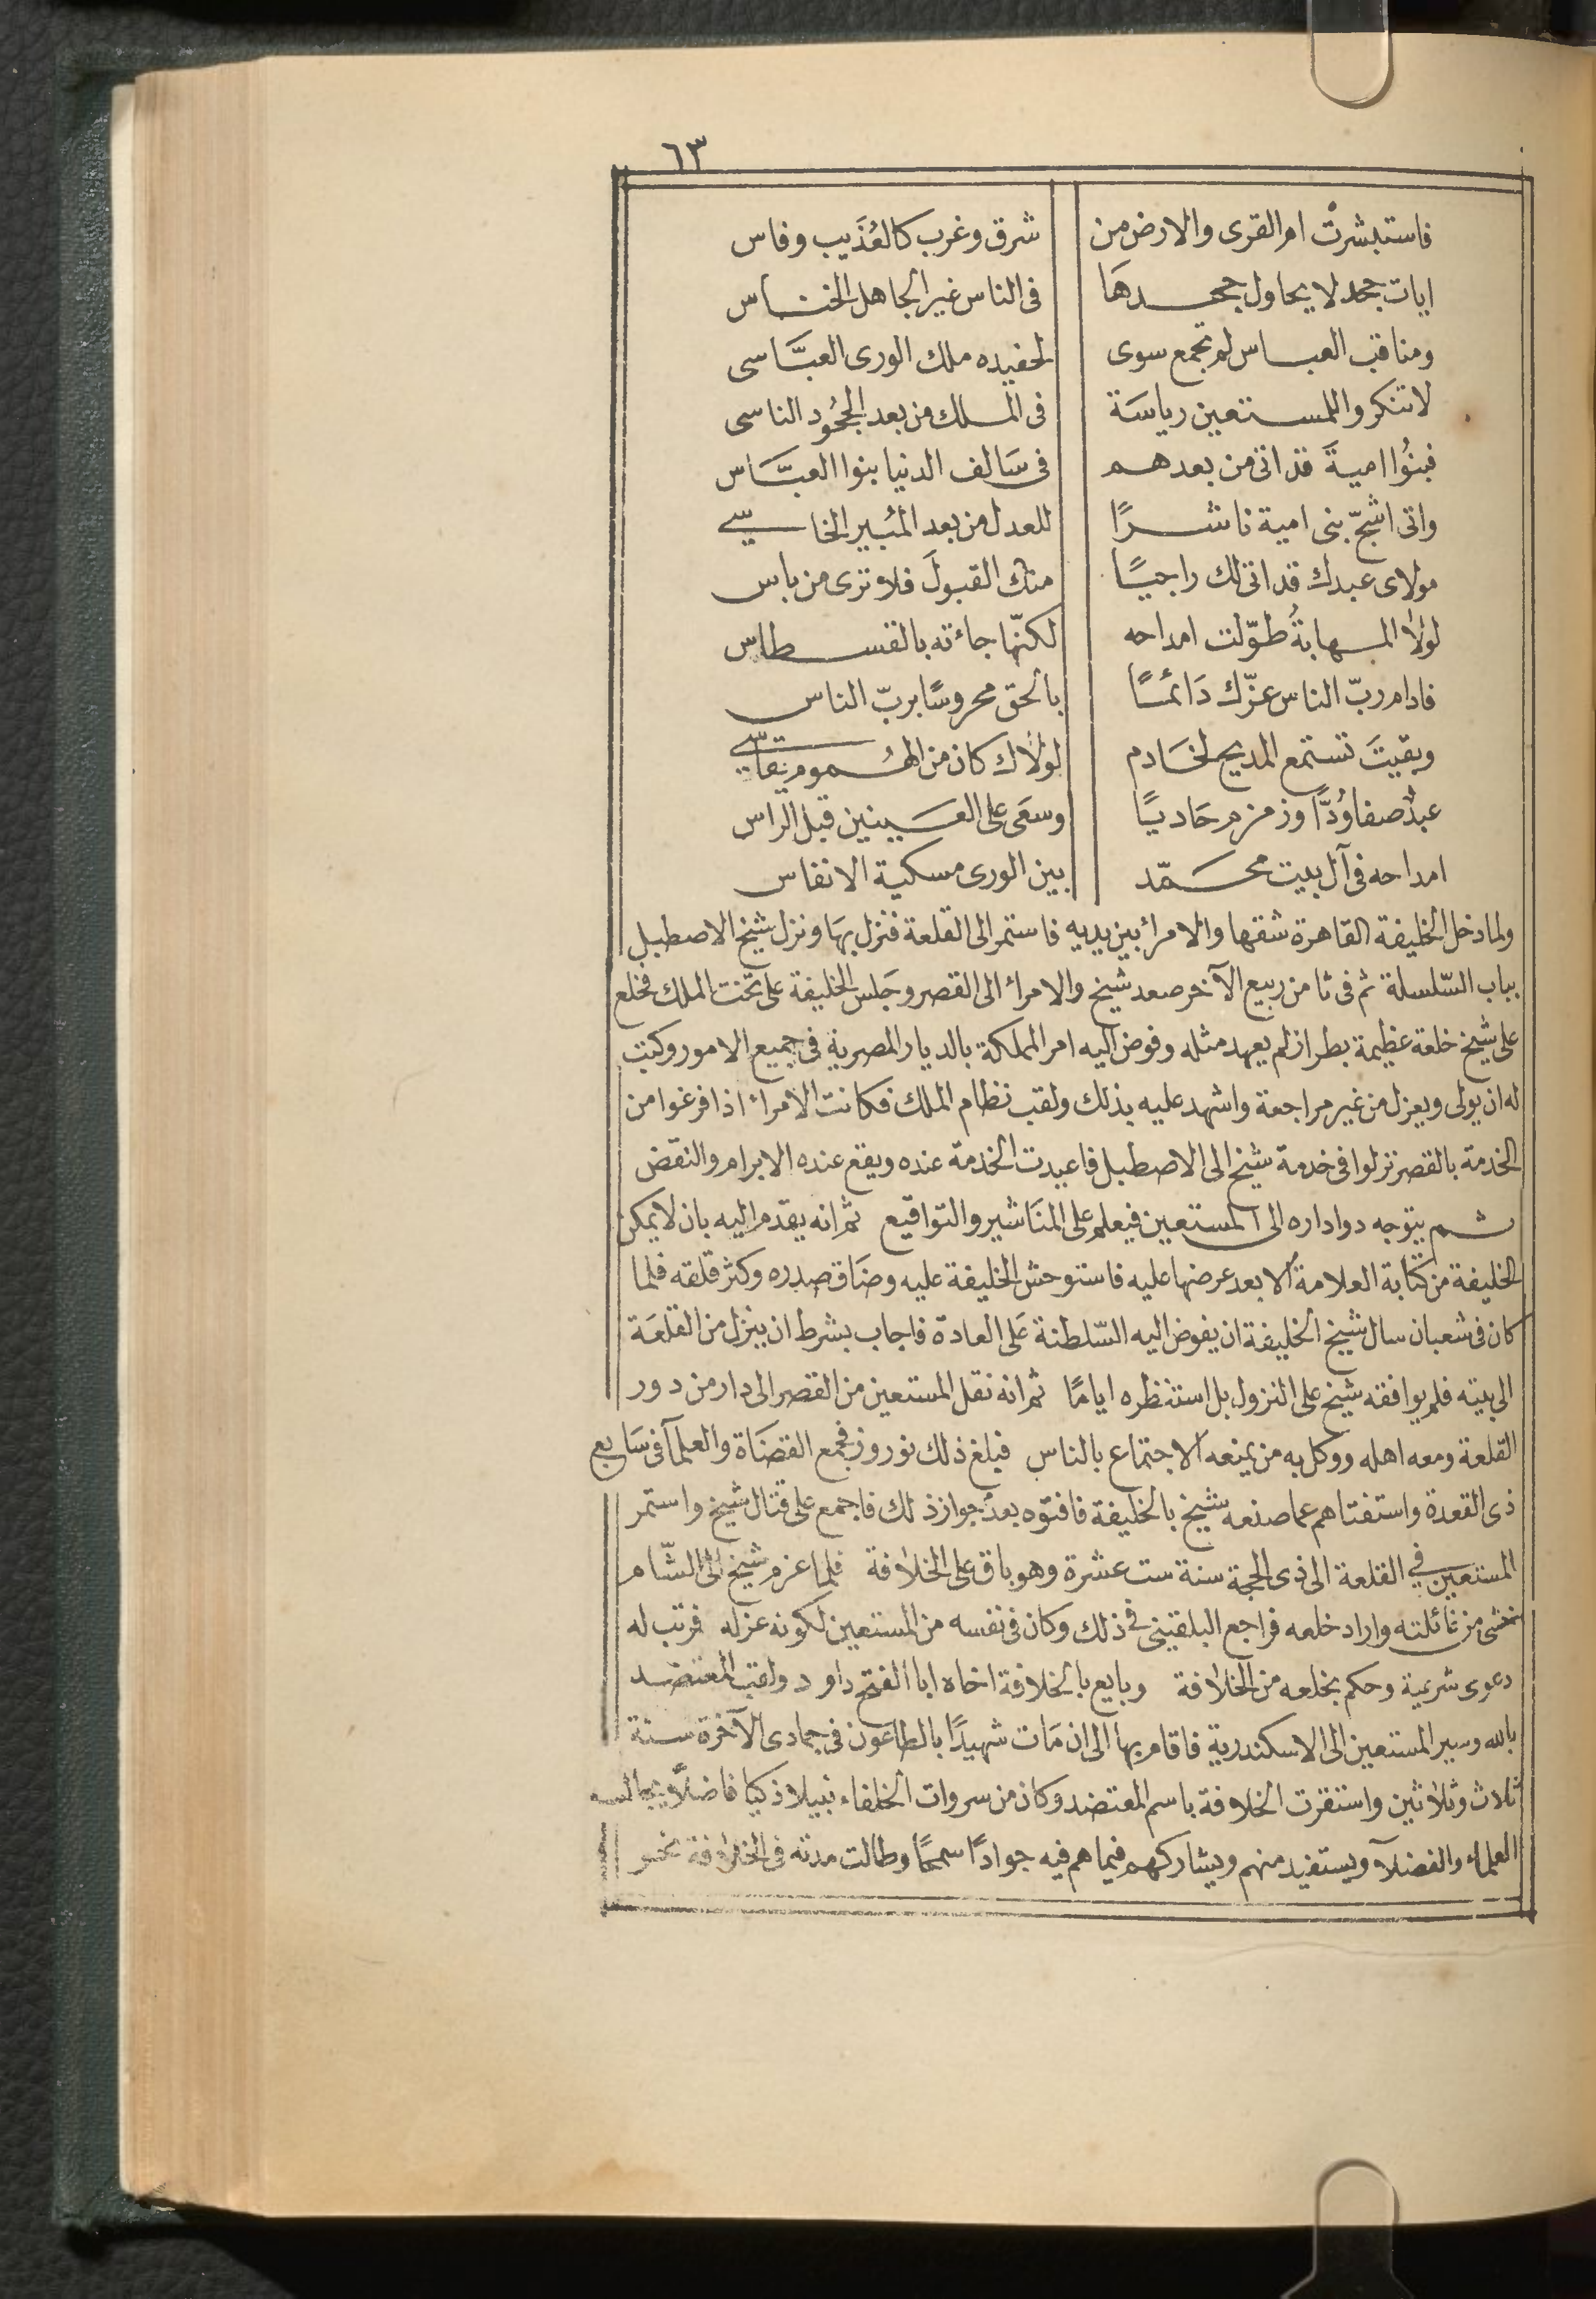 ٦٣
فاستبشرتْ ام القرى والارض من شرق وغرب كالعُذَيب وفاس
ايات جمد لا يحاول جحدهَا فى الناس غير الجاهل الخناس
ومناقب العباس لم تجمع سوى لحفيده ملك الورى العبَّاسى
لا تنكروا للمستعين رياسَة فى الملك من بعد الجُحُود الناسى
فبنُوا اميةَ قد اتى من بعدهم فى سَالف الدنيا بنوا العبَّاس
واتى اشجّ بنى امية ناشرًا للعدل من بعد المُبير الخاسى
مولاى عبدك قد اتى لك راجيًا منك القبولَ فلا ترى من باس
لولا المهابةُ طوّلت امداحه لكنّها جاءته بالقسطاس
فادام ربّ الناس عزّك دَائمًا بالحق محروسًا بربّ الناس
وبقيتَ تستمع المديح لخَادم لولاك كان من الهُموم يقاسى
عبدٌ صفا وُدًّا وزمزم حَاديًا وسعَى على العَينين قبل الراس
امداحه فى آل بيت محمّد بين الورى مسكية الانفاس
ولما دخل الخليفة القاهرة شقها والامراء بين يديه فاستمر الى القلعة فنزل بهَا ونزل شيخ الاصطبل
بباب السّلسلة ثم فى ثامن ربيع الآخر صعد شيخ والامراء الى القصر وجَلس الخليفة على تخت الملك فخلع
على شيخ خلعة عظيمة بطراز لم يعهد مثله وفوض اليه امر المملكة بالديار المصرية فى جميع الامور وكتب
له ان يولى ويعزل من غير مراجعة واشهد عليه بذلك ولقب نظام الملك فكانت الامراء اذا فرغوا من
الخدمة بالقصر نزلوا فى خدمة شيخ الى الاصطبل فاعيدت الخدمة عنده ويقع عنده الابرام والنقض
ثم يتوجه دواداره الى المستعين فيعلم على المنَاشير والتواقيع ثم انه يقدم اليه بان لا يمكن
الخليفة من كتابة العلامة الا بعد عرضها عليه فاستوحش الخليفة عليه وضَاق صدره وكثر قلقه فلما
كان فى شعبان سال شيخ الخليفة ان يفوض اليه السّلطنة عَلى العادة فاجاب بشرط ان ينزل من القلعَة
الى بيته فلم يوافقه شيخ على النزول بل استنظره ايامًا ثم انه نقل المستعين من القصر الى دار من دور
القلعة ومعه اهله ووكل به من يمنعه الاجتماع بالناس فبلغ ذلك نوروز فجمع القضَاة والعلمآ فى سَابع
ذى القعدة واستفتاهم عما صنعه شيخ بالخليفة فافتوه بعدم جواز ذلك فاجمع على قتال شيخ واستمر
المستعين في القلعة الى ذى الحجة سنة ست عشرة وهو باق على الخلافة فلما عزم شيخ الى الشّام
خشى من غائلته واراد خلعه فراجع البلقينى فى ذلك وكان فى نفسه من المستعين لكونه عزله فرتب له
دعوى شرعية وحكم بخلعه من الخلافة وبايع بالخلافة اخاه ابا الفتح داود ولقب المعتضد
بالله وسير المستعين الى الاسكندرية فاقام بها الى ان مَات شهيدًا بالطاعون فى جمادى الآخرة سنة
ثلاث وثلاثين واستقرت الخلافة باسم المعتضد وكان من سروات الخلفاء نبيلا ذكيا فاضلًا يجالس
العلماء والفضلآ ويستفيد منهم ويشاركهم فيما هم فيه جوادًا سمحًا وطالت مدته فى الخلافة نحو